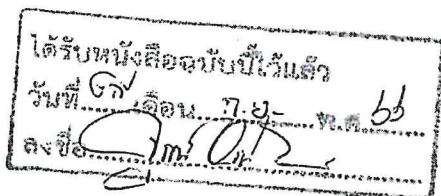 ได้รับหนังสือฉบับนี้ไว้แล้ว
วันที่ เดือน ก.ย. พ.ศ. 66
ลงชื่อ